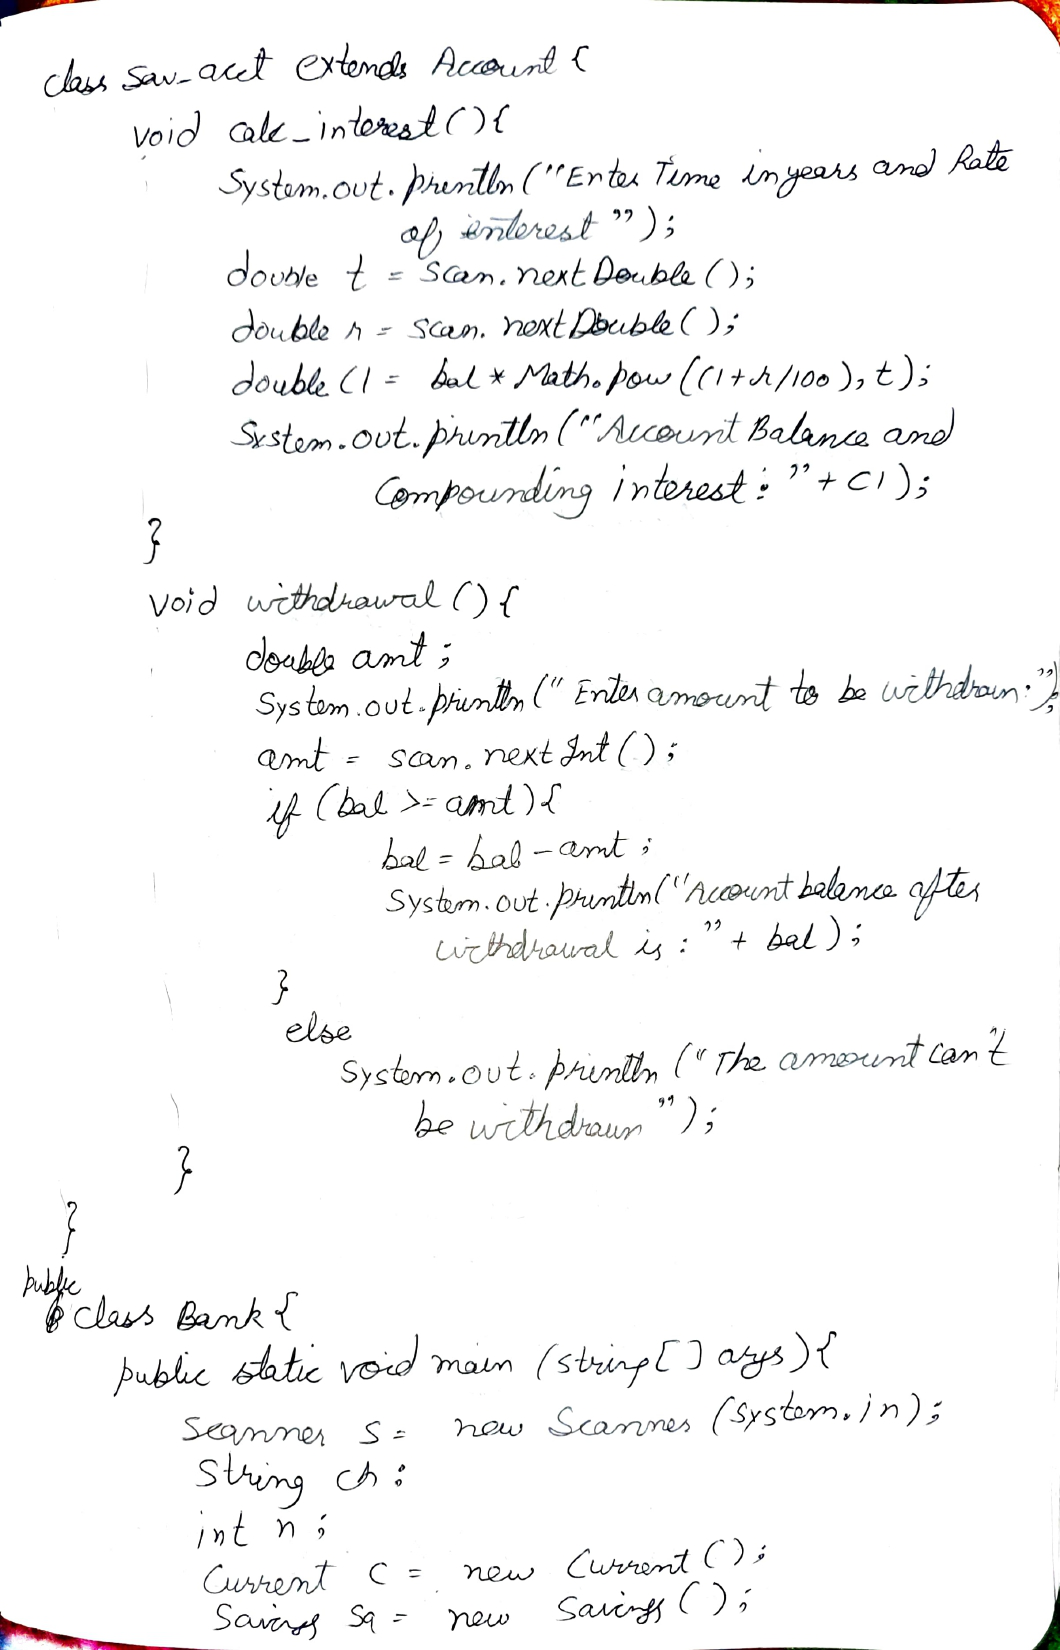 class Sav_acct extends Account {
void calc_interest(){
System.out.println("Enter Time in years and Rate
of interest");
double t = scan.nextDouble();
double r = scan.nextDouble();
double CI = bal * Math.pow((1+r/100), t);
System.out.println("Account Balance and
Compounding interest: "+CI);
}
void withdrawal(){
double amt;
System.out.println("Enter amount to be withdrawn:");
amt = scan.nextInt();
if (bal >= amt){
bal = bal - amt;
System.out.println("Account balance after
withdrawal is : " + bal);
}
else
System.out.println("The amount can't
be withdrawn");
}
}
public
class Bank {
public static void main (string[] args){
Scanner s = new Scanner (System.in);
String ch;
int n;
Current c = new Current();
Savings sa = new Savings();